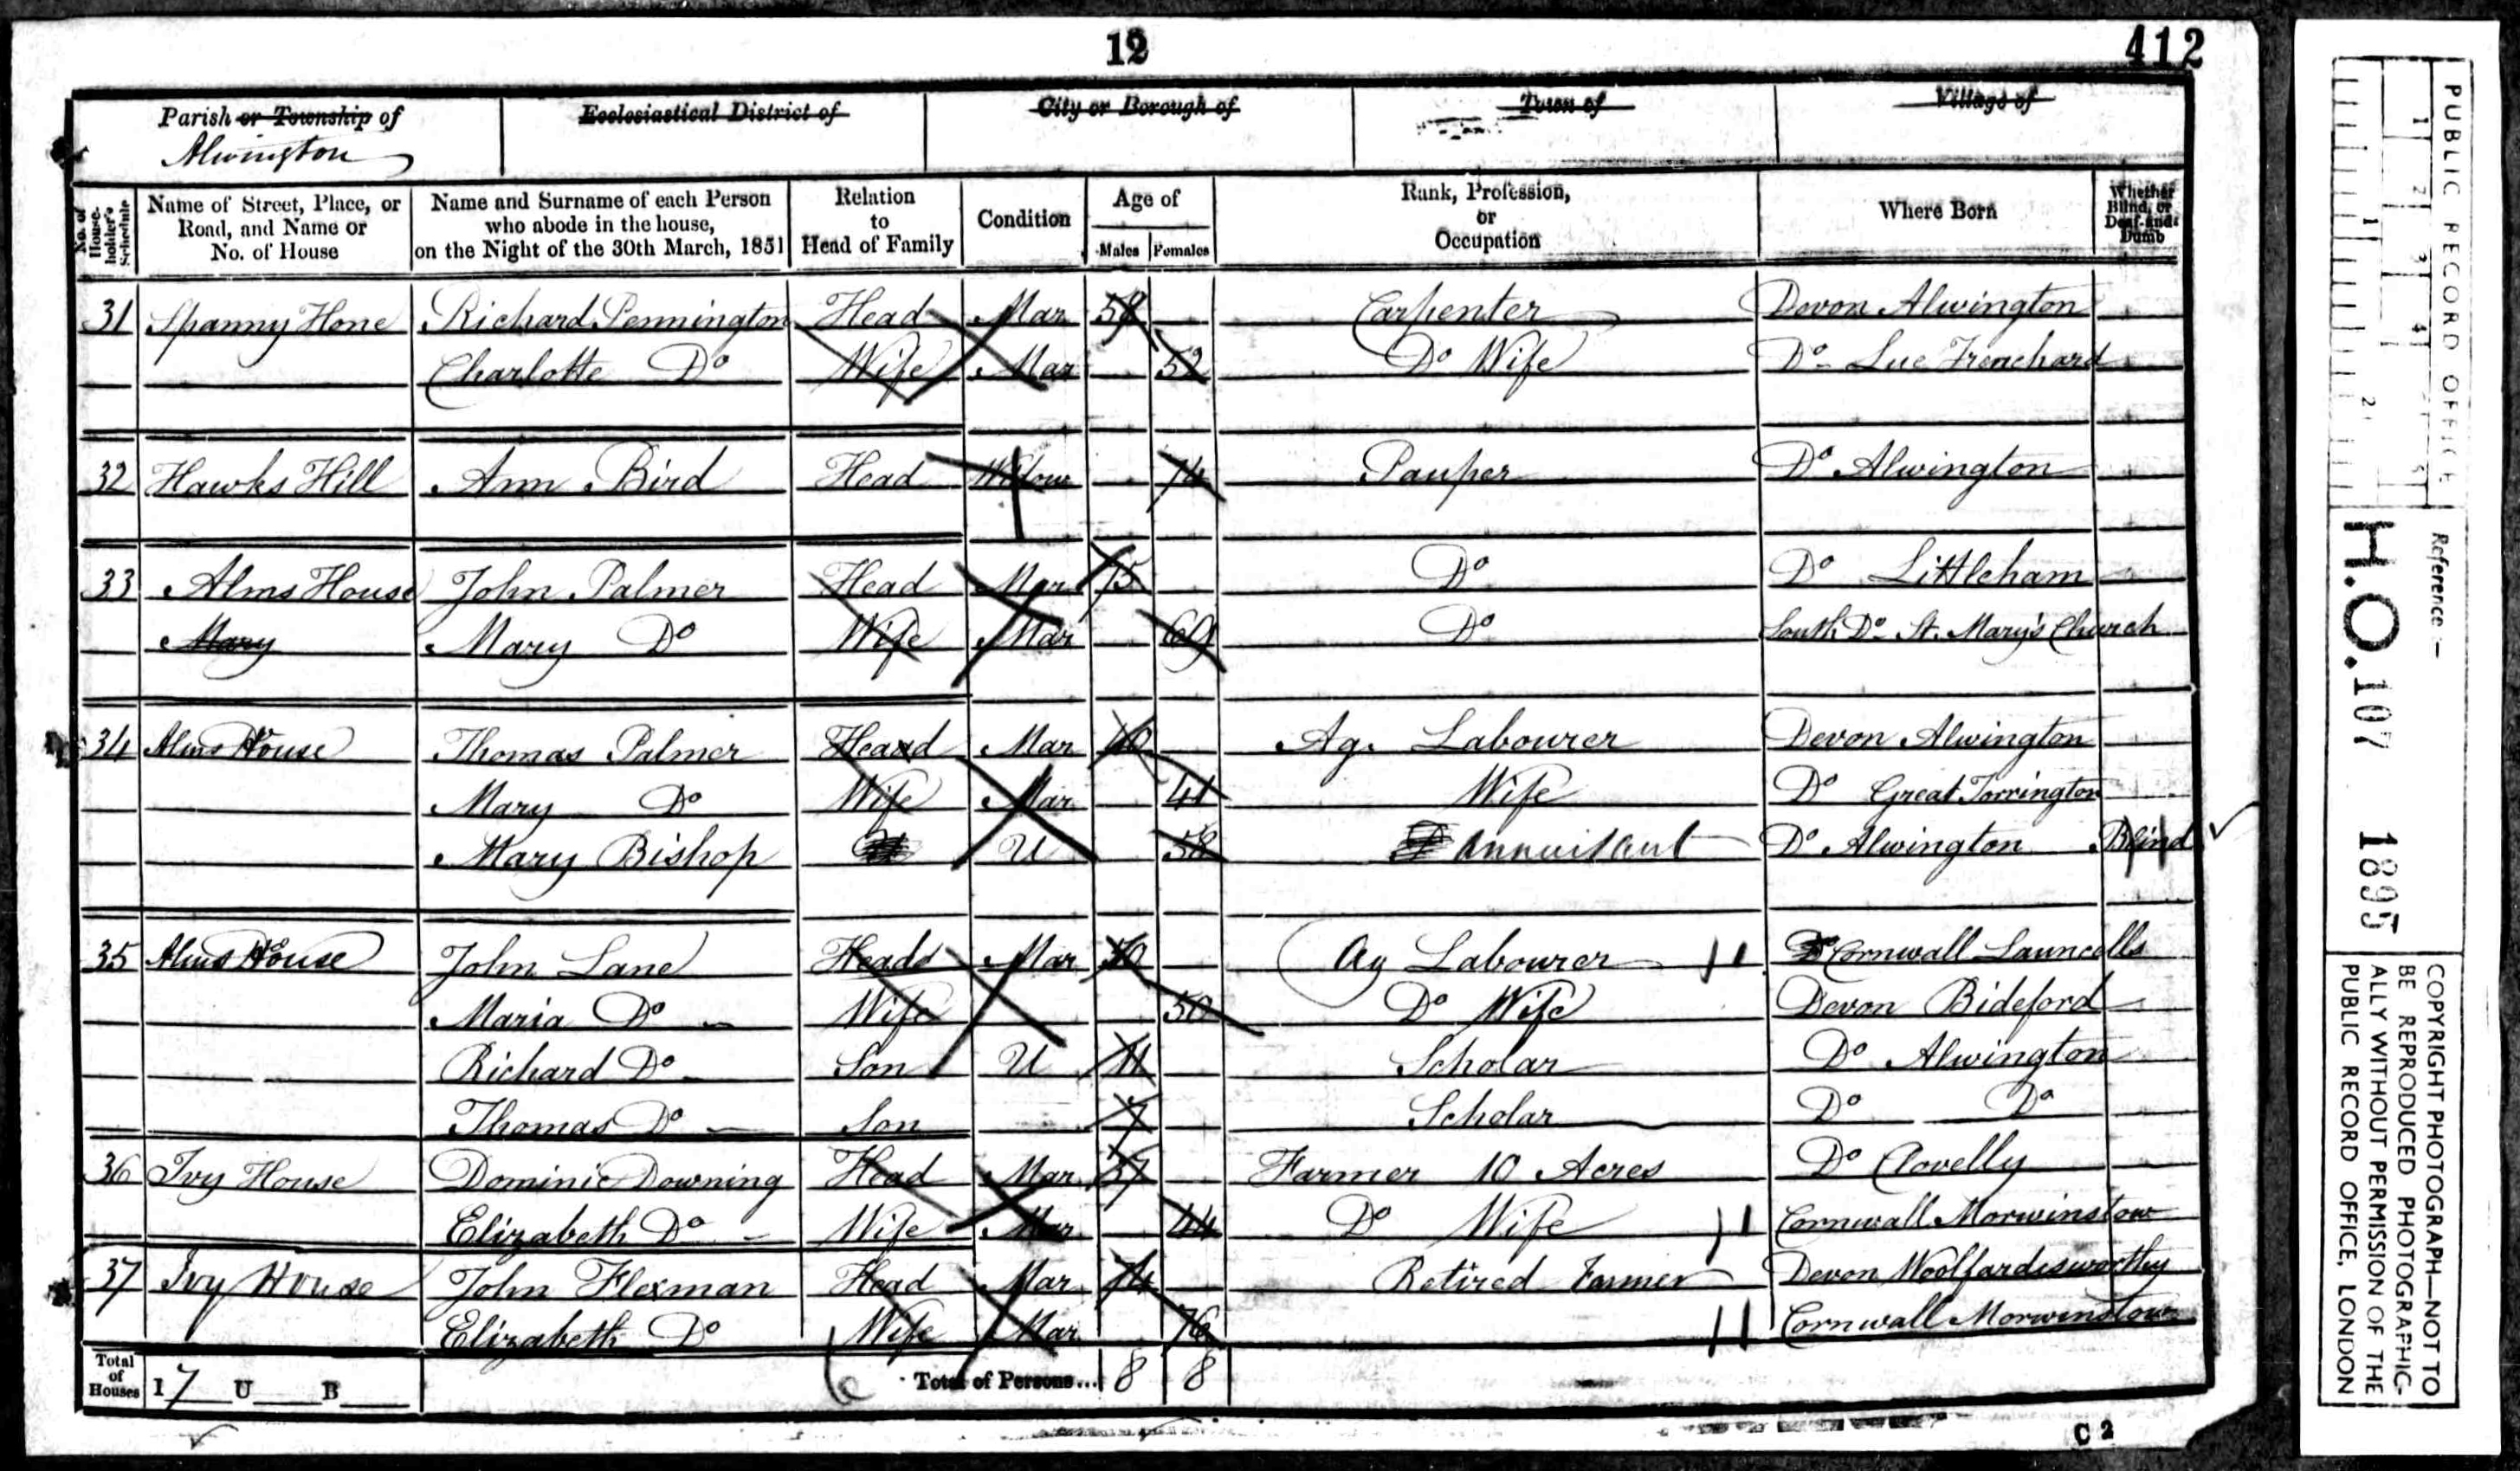 12
412
Parish or Township of
Alwington
Ecclesiastical District of
City or Borough of
Town of
Village of
No. of House-holder's Schedule
Name of Street, Place, or Road, and Name or No. of House
Name and Surname of each Person who abode in the house, on the Night of the 30th March, 1851
Relation to Head of Family
Condition
Age of
Males Females
Rank, Profession, or Occupation
Where Born
Whether Blind, or Deaf-and-Dumb
31 Spanny Hone Richard Pennington Head Mar Carpenter Devon Alwington
Charlotte Do Wife Mar 52 Do Wife Do Lue Trenchard
32 Hawks Hill Ann Bird Head Widow 74 Pauper Do Alwington
33 Alms House John Palmer Head Mar 75 Do Do Littleham
Mary Mary Do Wife Mar 69 Do South Do St. Mary's Church
34 Alms House Thomas Palmer Head Mar Ag. Labourer Devon Alwington
Mary Do Wife Mar 41 Wife Do Great Torrington
Mary Bishop U 58 Annuitant Do Alwington Blind
35 Alms House John Lane Head Mar 50 Ag Labourer Cornwall Launcells
Maria Do Wife 50 Do Wife Devon Bideford
Richard Do Son U 11 Scholar Do Alwington
Thomas Do Son 7 Scholar Do Do
36 Ivy House Dominic Downing Head Mar 37 Farmer 10 Acres Do Clovelly
Elizabeth Do Wife Mar 44 Do Wife Cornwall Morwinstow
37 Ivy House John Flexman Head Mar 74 Retired Farmer Devon Woolfardisworthy
Elizabeth Do Wife Mar 76 Cornwall Morwenstow
Total of Houses I 7 U B Total of Persons... 8 8
C 2
PUBLIC RECORD OFFICE
1 2 3 4 5
1 2
Reference:-
H.O. 107 1895
COPYRIGHT PHOTOGRAPH—NOT TO
BE REPRODUCED PHOTOGRAPHIC-
ALLY WITHOUT PERMISSION OF THE
PUBLIC RECORD OFFICE, LONDON